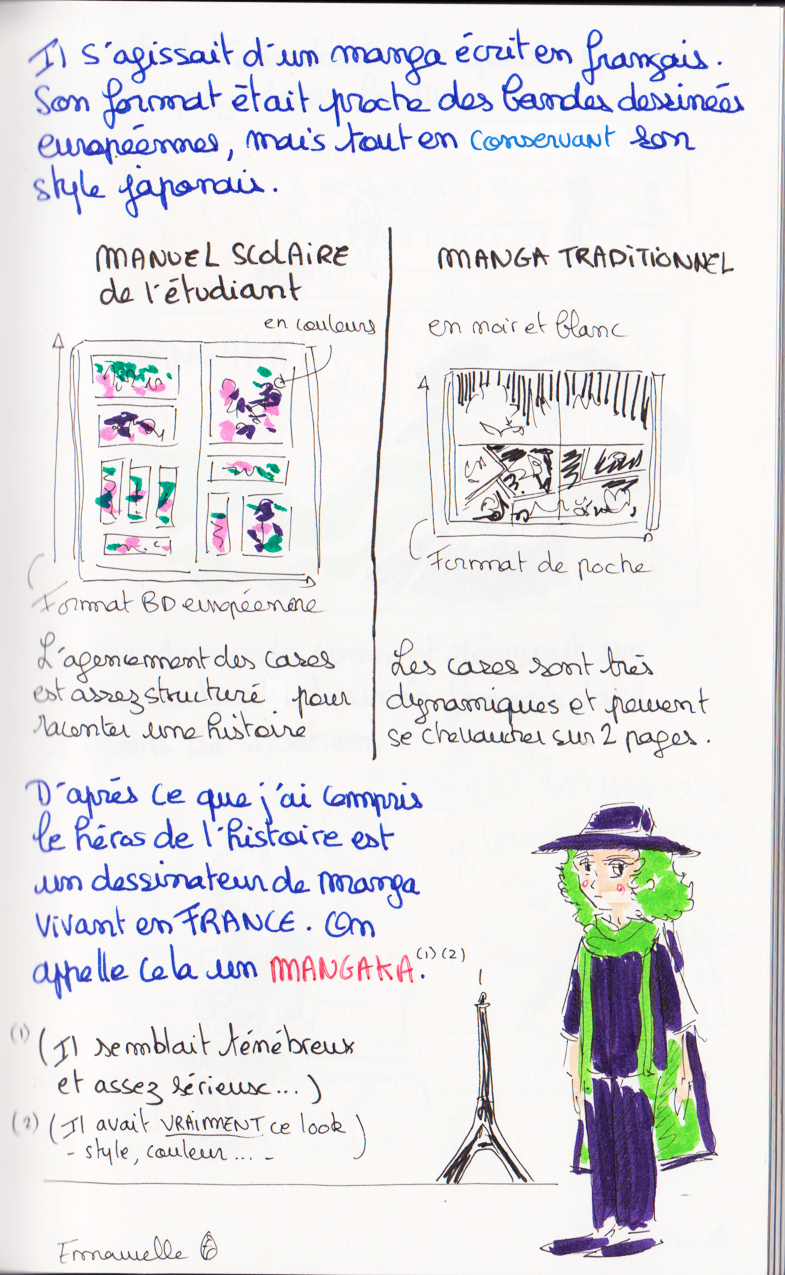 Il s'agissait d'un manga écrit en français.
Son format était proche des bandes dessinées
européennes, mais tout en conservant son
style japonais.
MANUEL SCOLAIRE
de l'étudiant
en couleurs
Format BD européenne
L'agencement des cases
est assez structuré pour
raconter une histoire
MANGA TRADITIONNEL
en noir et blanc
Format de poche
Les cases sont très
dynamiques et peuvent
se chevaucher sur 2 pages.
D'après ce que j'ai compris
le héros de l'histoire est
un dessinateur de manga
vivant en FRANCE. On
appelle cela un MANGAKA.(1)(2)
(1) (Il semblait ténébreux
et assez sérieux...)
(2) (Il avait VRAIMENT ce look
- style, couleur... -)
Emmanuelle